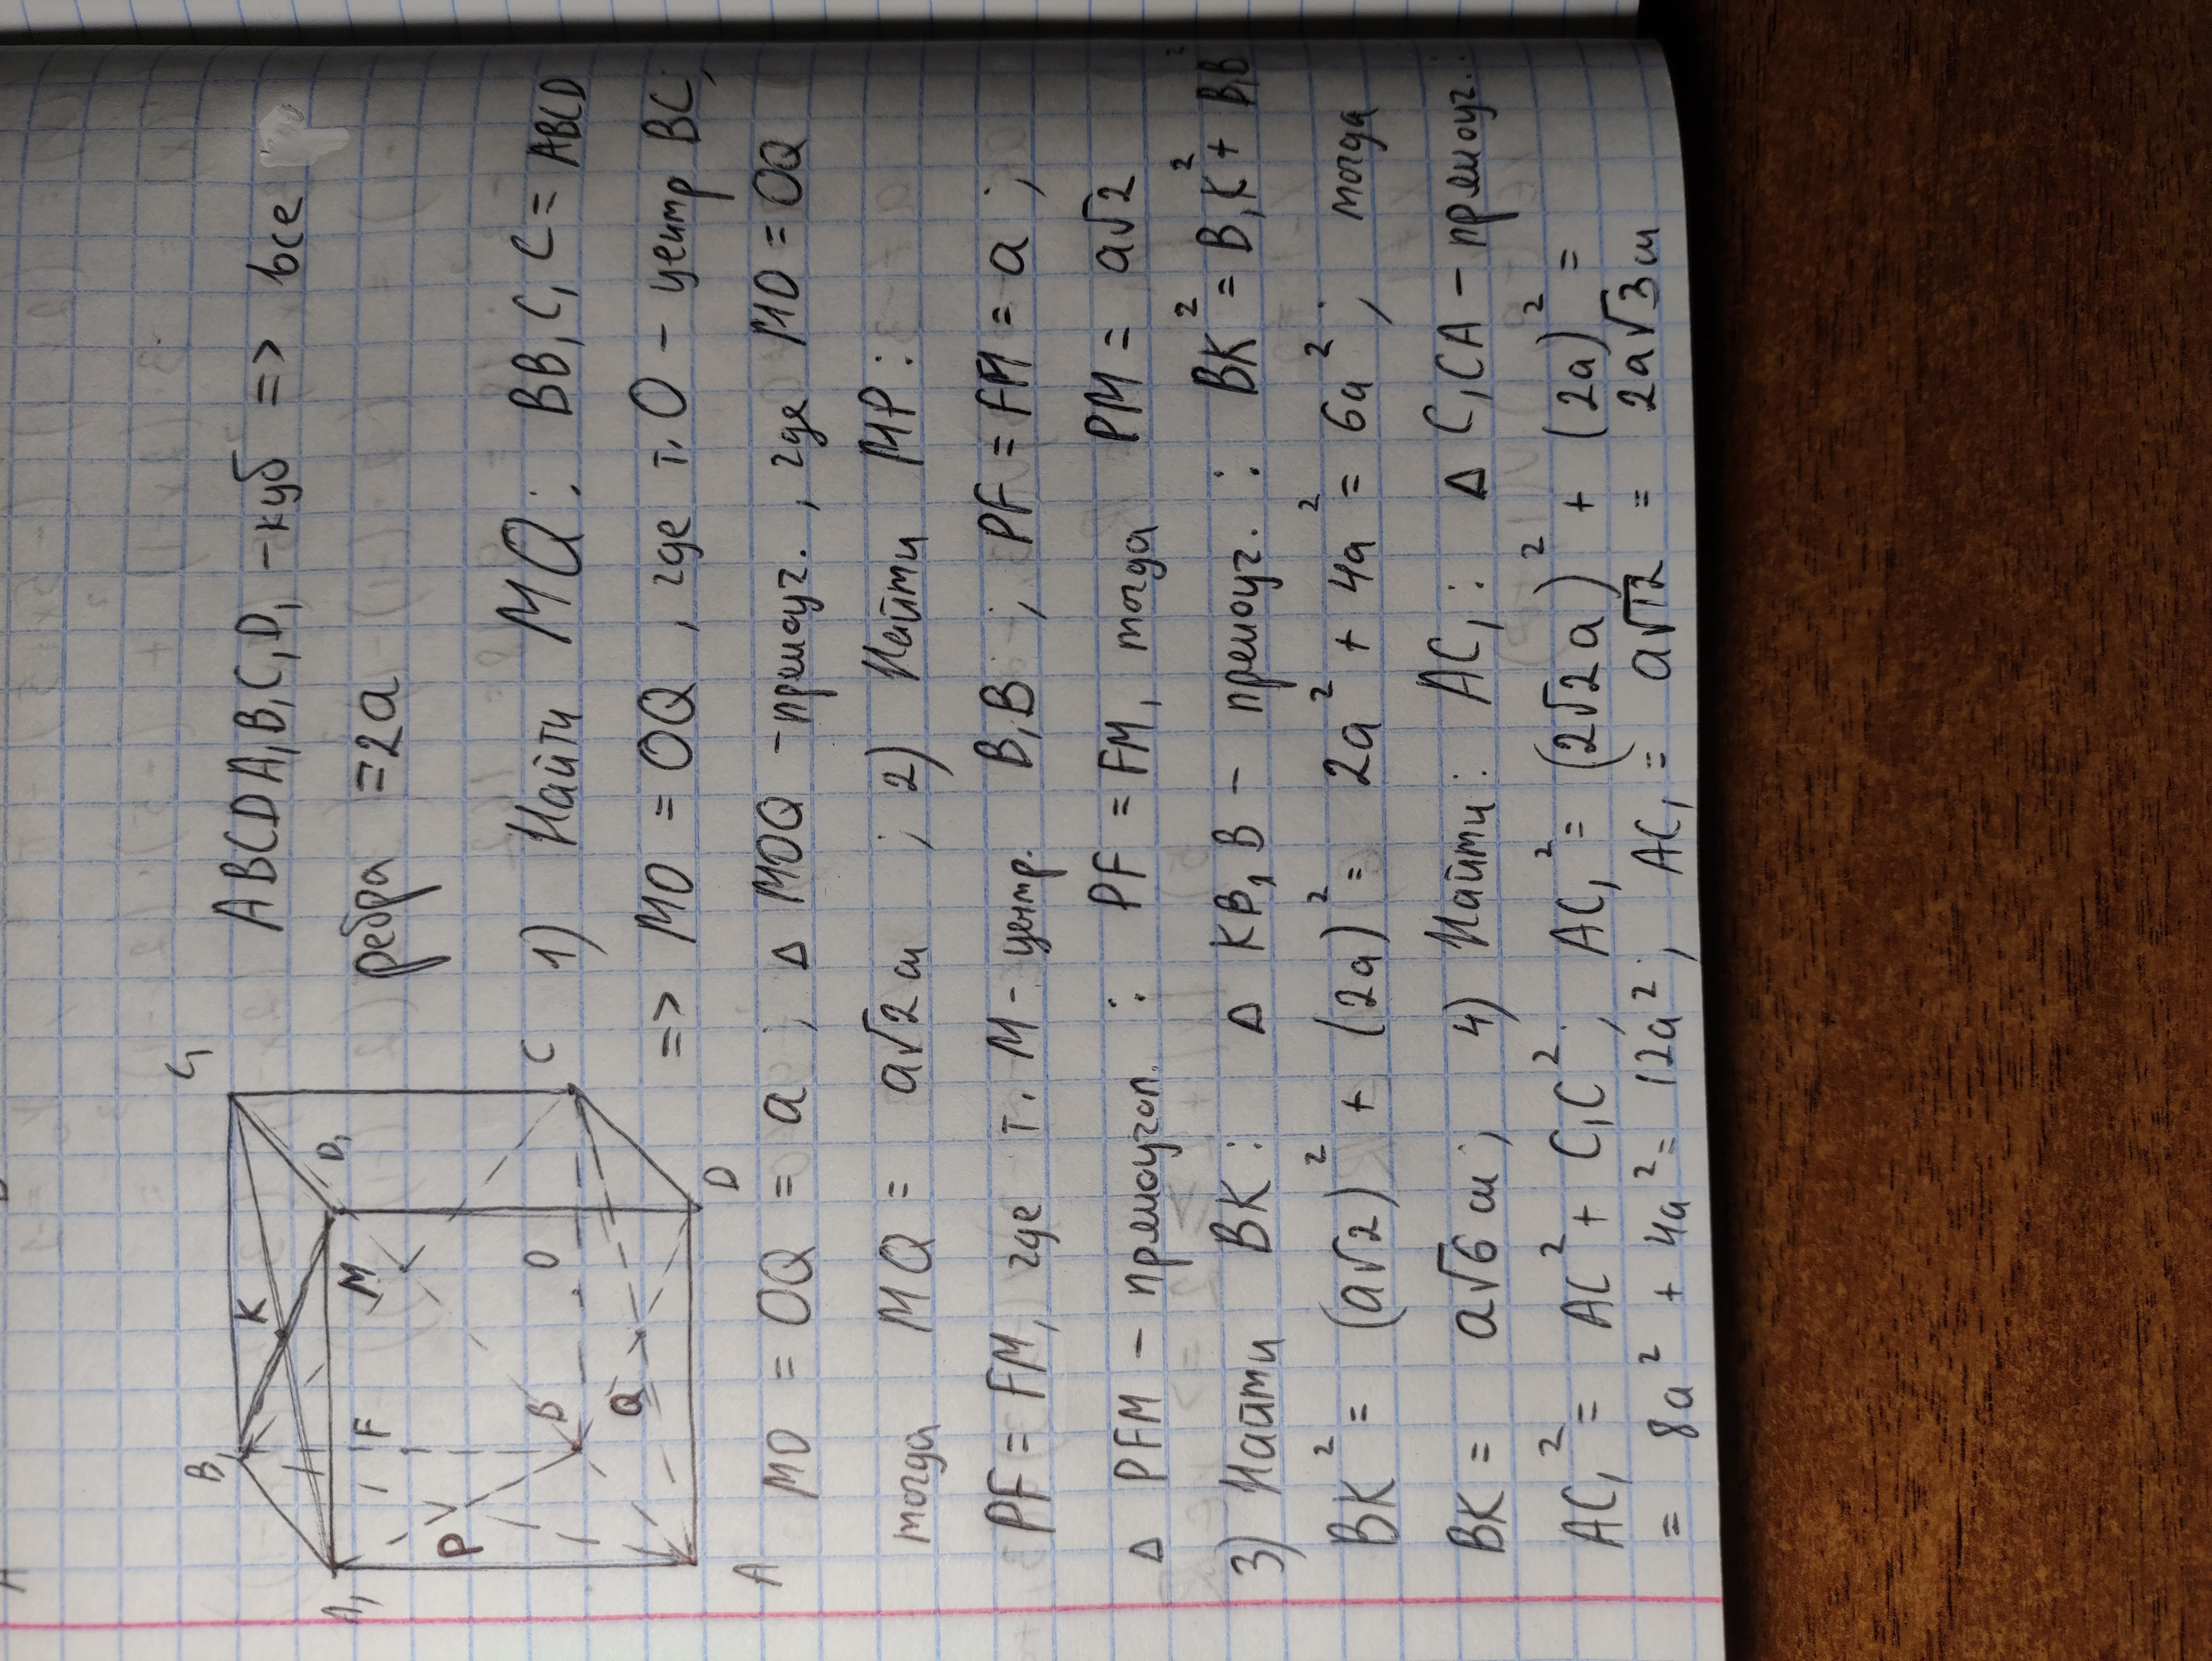 ABCDA₁B₁C₁D₁ - куб => все
ребра = 2a
1) Найти MQ: BB₁C₁C = ABCD
=> MO = OQ, где т. O - центр BC;
MO = OQ = a; Δ MOQ - прямоуг., где MO = OQ
тогда MQ = a√2 см; 2) Найти MP:
PF = FM, где т. M - центр. B₁B; PF = FM = a;
Δ PFM - прямоугол. : PF = FM, тогда PM = a√2
3) Найти BK: Δ KB₁B - прямоуг. : BK² = B₁K² + B₁B²
BK² = (a√2)² + (2a)² = 2a² + 4a² = 6a²; тогда
BK = a√6 см; 4) Найти: AC₁: Δ C₁CA - прямоуг.:
AC₁² = AC² + C₁C²; AC₁² = (2√2a)² + (2a)² =
= 8a² + 4a² = 12a²; AC₁ = a√12 = 2a√3 см
B
C₁
K
A₁
D₁
M
F
P
C
O
B
Q
A
D